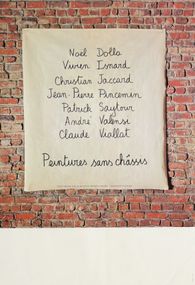 Noël Dolla
Vivien Isnard
Christian Jaccard
Jean-Pierre Pincemin
Patrick Saytour
André Valensi
Claude Viallat
Peintures sans châssis